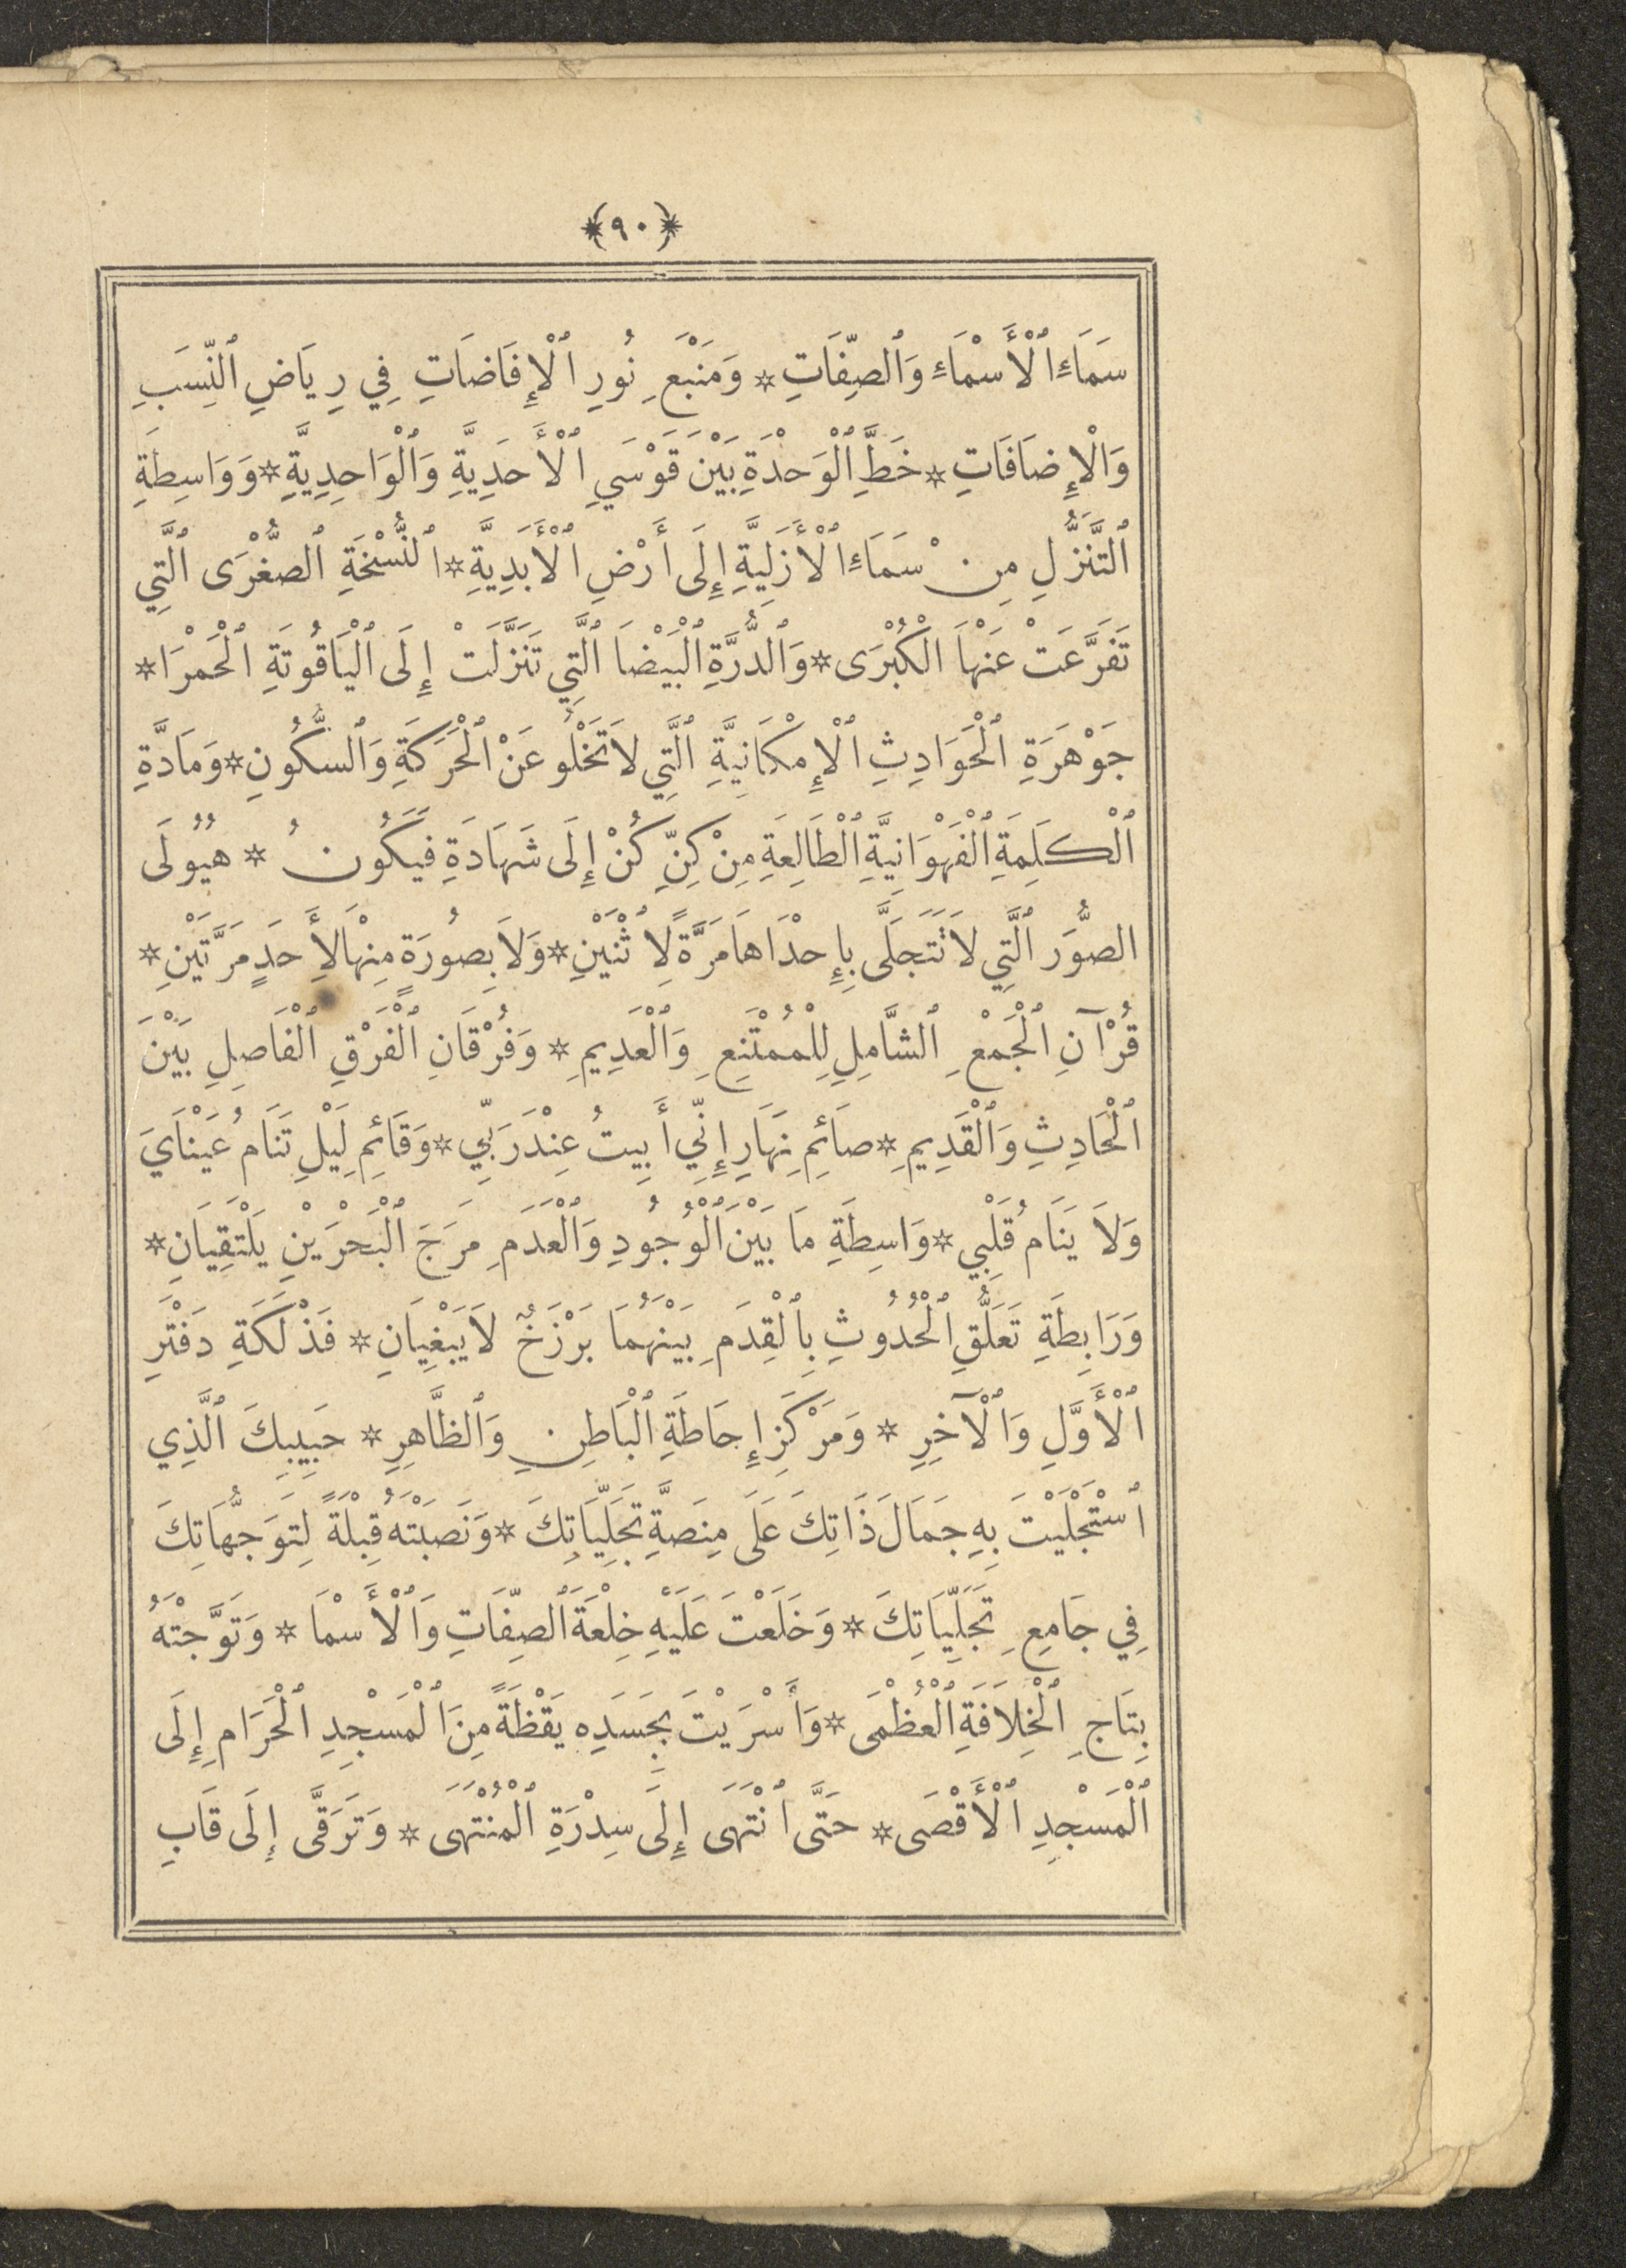 ﴿٩٠﴾
سَمَاءِ ٱلْأَسْمَاءِ وَٱلصِّفَاتِ * وَمَنْبَعِ نُورِ ٱلْإِفَاضَاتِ فِي رِيَاضِ ٱلنِّسَبِ
وَالْإِضَافَاتِ * خَطِّ ٱلْوَحْدَةِ بَيْنَ قَوْسَيِ ٱلْأَحَدِيَّةِ وَٱلْوَاحِدِيَّةِ * وَوَاسِطَةِ
ٱلتَّنَزُّلِ مِنْ سَمَاءِ ٱلْأَزَلِيَّةِ إِلَى أَرْضِ ٱلْأَبَدِيَّةِ * ٱلنُّسْخَةِ ٱلصُّغْرَى ٱلَّتِي
تَفَرَّعَتْ عَنْهَا ٱلْكُبْرَى * وَٱلدُّرَّةِ ٱلْبَيْضَا ٱلَّتِي تَنَزَّلَتْ إِلَى ٱلْيَاقُوتَةِ ٱلْحَمْرَا *
جَوْهَرَةِ ٱلْحَوَادِثِ ٱلْإِمْكَانِيَّةِ ٱلَّتِي لَا تَخْلُو عَنْ ٱلْحَرَكَةِ وَٱلسُّكُونِ * وَمَادَّةِ
ٱلْكَلِمَةِ ٱلْفَهْوَانِيَّةِ ٱلْطَالِعَةِ مِنْ كِنِّ كُنْ إِلَى شَهَادَةِ فَيَكُونُ * هَيُولَى
الصُّوَرِ ٱلَّتِي لَا تَتَجَلَّى بِإِحْدَاهَا مَرَّةً لِاثْنَيْنِ * وَلَا بِصُورَةٍ مِنْهَا لِأَحَدٍ مَرَّتَيْنِ *
قُرْآنِ ٱلْجَمْعِ ٱلشَّامِلِ لِلْمُمْتَنِعِ وَٱلْعَدِيمِ * وَفُرْقَانِ ٱلْفَرْقِ ٱلْفَاصِلِ بَيْنَ
ٱلْحَادِثِ وَٱلْقَدِيمِ * صَائِمِ نَهَارِ إِنِّي أَبِيتُ عِنْدَ رَبِّي * وَقَائِمِ لَيْلِ تَنَامُ عَيْنَايَ
وَلَا يَنَامُ قَلْبِي * وَاسِطَةِ مَا بَيْنَ ٱلْوُجُودِ وَٱلْعَدَمِ مَرَجَ ٱلْبَحْرَيْنِ يَلْتَقِيَانِ *
وَرَابِطَةِ تَعَلُّقِ ٱلْحُدُوثِ بِٱلْقِدَمِ بَيْنَهُمَا بَرْزَخٌ لَا يَبْغِيَانِ * فَذْلَكَةِ دَفْتَرِ
ٱلْأَوَّلِ وَٱلْآخِرِ * وَمَرْكَزِ إِحَاطَةِ ٱلْبَاطِنِ وَٱلظَّاهِرِ * حَبِيبِكَ ٱلَّذِي
ٱسْتَجْلَيْتَ بِهِ جَمَالَ ذَاتِكَ عَلَى مِنَصَّةِ تَجَلِّيَاتِكَ * وَنَصَبْتَهُ قِبْلَةً لِتَوَجُّهَاتِكَ
فِي جَامِعِ تَجَلِّيَاتِكَ * وَخَلَعْتَ عَلَيْهِ خِلْعَةَ ٱلصِّفَاتِ وَٱلْأَسْمَا * وَتَوَّجْتَهُ
بِتَاجِ ٱلْخِلَافَةِ ٱلْعُظْمَى * وَأَسْرَيْتَ بِجَسَدِهِ يَقْظَةً مِنَ ٱلْمَسْجِدِ ٱلْحَرَامِ إِلَى
ٱلْمَسْجِدِ ٱلْأَقْصَى * حَتَّى ٱنْتَهَى إِلَى سِدْرَةِ ٱلْمُنْتَهَى * وَتَرَقَّى إِلَى قَابِ